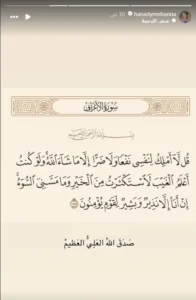 hanadymehanna
سُورَةُ الأَعْرَافِ
بِسْمِ اللَّهِ الرَّحْمَٰنِ الرَّحِيمِ
قُل لَّآ أَمْلِكُ لِنَفْسِى نَفْعًا وَلَا ضَرًّا إِلَّا مَا شَآءَ ٱللَّهُ وَلَوْ كُنتُ
أَعْلَمُ ٱلْغَيْبَ لَٱسْتَكْثَرْتُ مِنَ ٱلْخَيْرِ وَمَا مَسَّنِىَ ٱلسُّوٓءُ
إِنْ أَنَا۠ إِلَّا نَذِيرٌ وَبَشِيرٌ لِّقَوْمٍ يُؤْمِنُونَ
صَدَقَ اللهُ العَلِيُّ العَظِيمُ